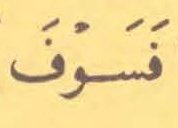 فَسَوْفَ